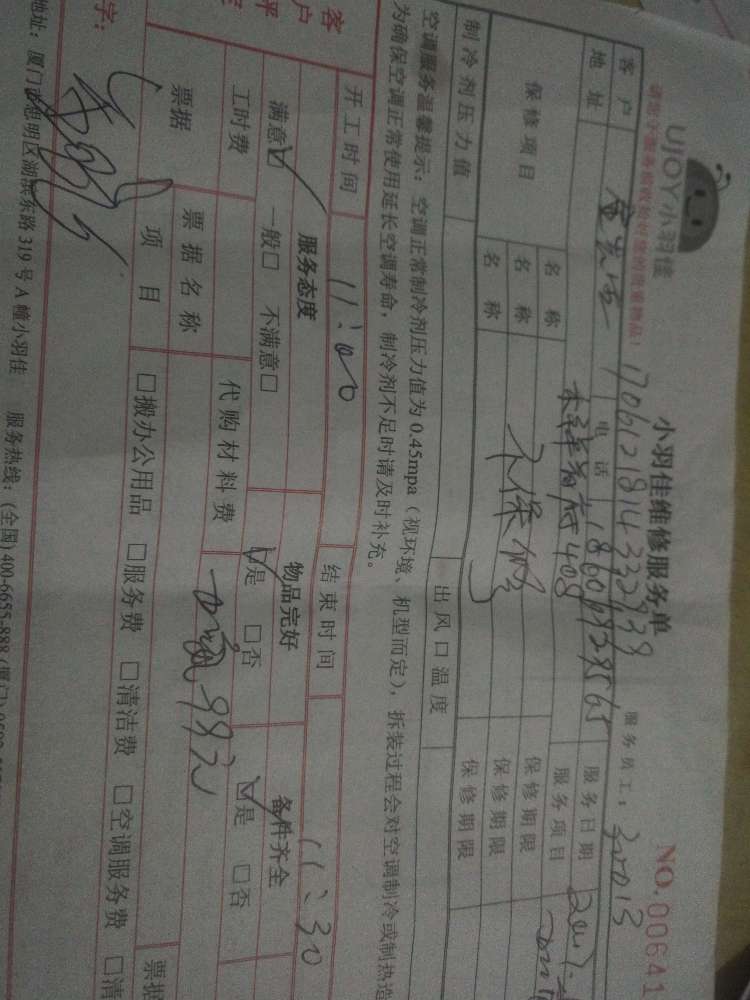 UJOY小羽佳
小羽佳维修服务单
NO.00641
1706121814332939
服务员工：30013
客户
电话
服务日期
地址
服务项目
保修项目
名称
保修期限
名称
不保修
保修期限
名称
保修期限
制冷剂压力值
出风口温度
空调服务温馨提示：空调正常制冷剂压力值为0.45mpa（视环境、机型而定），拆装过程会对空调制冷或制热造
为确保空调正常使用延长空调寿命，制冷剂不足时请及时补充。
开工时间
11:00
结束时间
11:30
客户
服务态度
物品完好
备件齐全
满意☑ 一般□ 不满意□
☑是 □否
☑是 □否
工时费
代购材料费
99元
票据
票据名称
项目
□搬办公用品 □服务费 □清洁费 □空调服务费 □清
票据
字：
地址：厦门市思明区湖滨东路319号A幢小羽佳 服务热线：(全国)400-6655-888